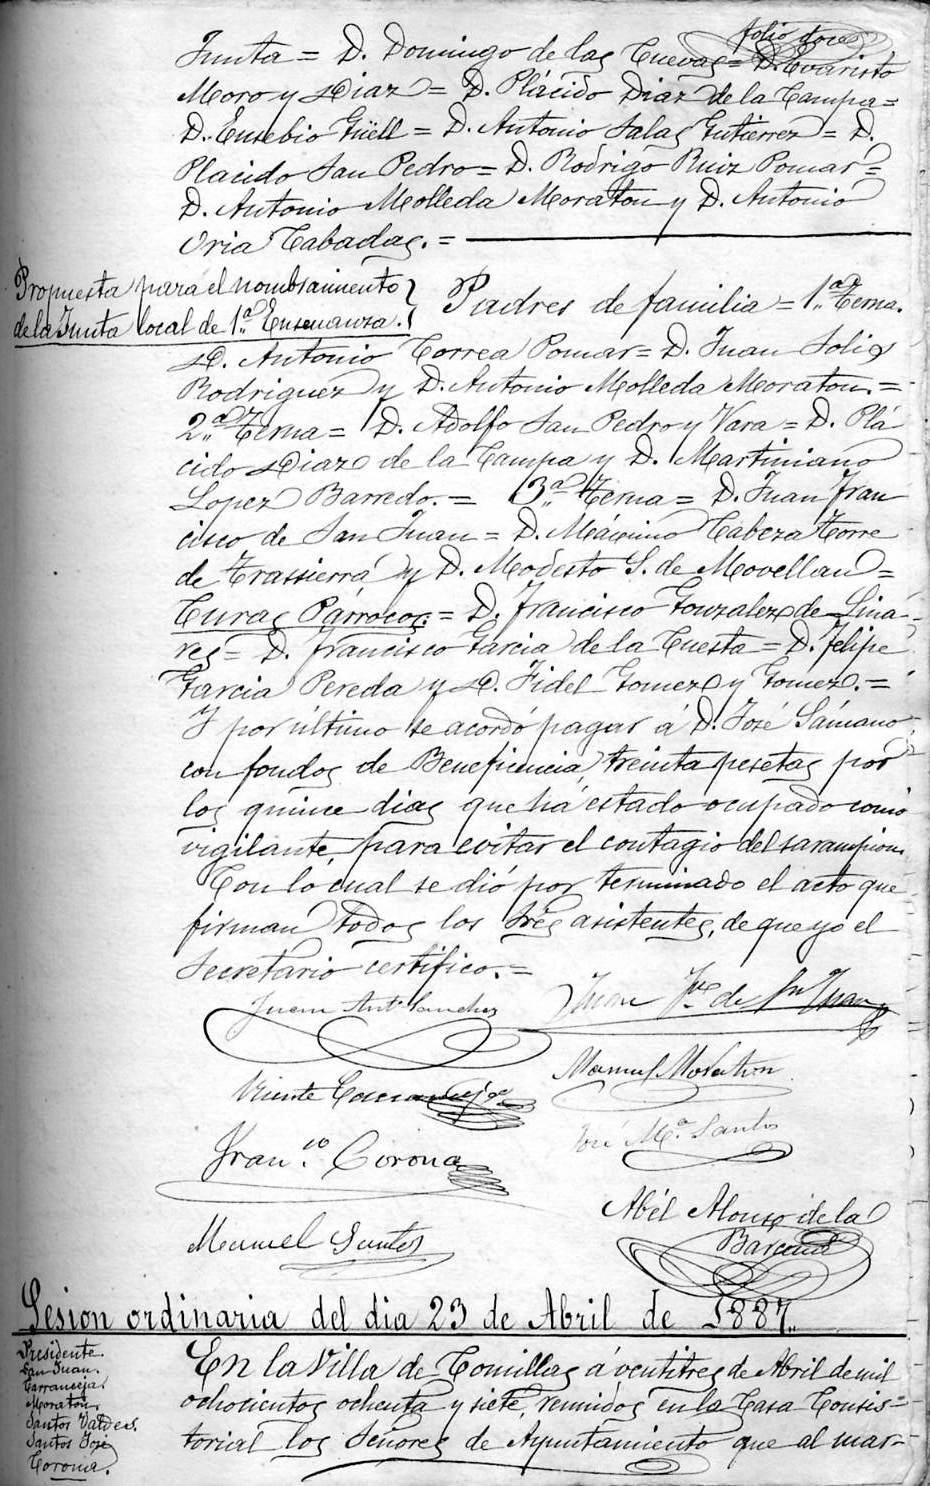 folio doce
Junta = D. Domingo de las Cuevas = D. Evaristo
Moro y Diaz = D. Plácido Diaz de la Campa =
D. Eusebio Güell = D. Antonio Salas Gutierrez = D.
Placido San Pedro = D. Rodrigo Ruiz Pomar =
D. Antonio Molleda Moraton y D. Antonio
Oria Cabadas. =
Propuesta para el nombramiento
de la Junta local de 1.ª Enseñanza.
Padres de familia = 1.ª Terna.
D. Antonio Correa Pomar = D. Juan Solis
Rodriguez y D. Antonio Molleda Moraton. =
2.ª Terna = D. Adolfo San Pedro y Vara = D. Plá
cido Diaz de la Campa y D. Martiniano
Lopez Barredo. = 3.ª Terna = D. Juan Fran
cisco de San Juan = D. Máximo Cabeza Torre
de Trassierra y D. Modesto G. de Movellan =
Curas Párrocos. = D. Francisco Gonzalez de Lina-
res = D. Francisco Garcia de la Cuesta = D. Felipe
Garcia Pereda y D. Fidel Gomez y Gomez. =
Y por último se acordó pagar á D. José Sámano
con fondos de Beneficencia, treinta pesetas por
los quince dias que há estado ocupado como
vigilante, para evitar el contagio del sarampion.
Con lo cual se dió por terminado el acto que
firman todos los Sres asistentes, de que yo el
Secretario certifico. =
Juan Ant.º Sanchez
Juan F.co de Sn Juan
Vicente Carranceja
Manuel Moraton
Fran.co Corona
José M.ª Santos
Manuel Santos
Abél Alonso de la
Bárcena
Sesion ordinaria del dia 23 de Abril de 1887.
Presidente.
San Juan.
Carranceja.
Moraton.
Santos Valdes.
Santos José
Corona.
En la Villa de Comillas á ventitres de Abril de mil
ochocientos ochenta y siete, reunidos en la Casa Consis-
torial los Señores de Ayuntamiento que al mar-